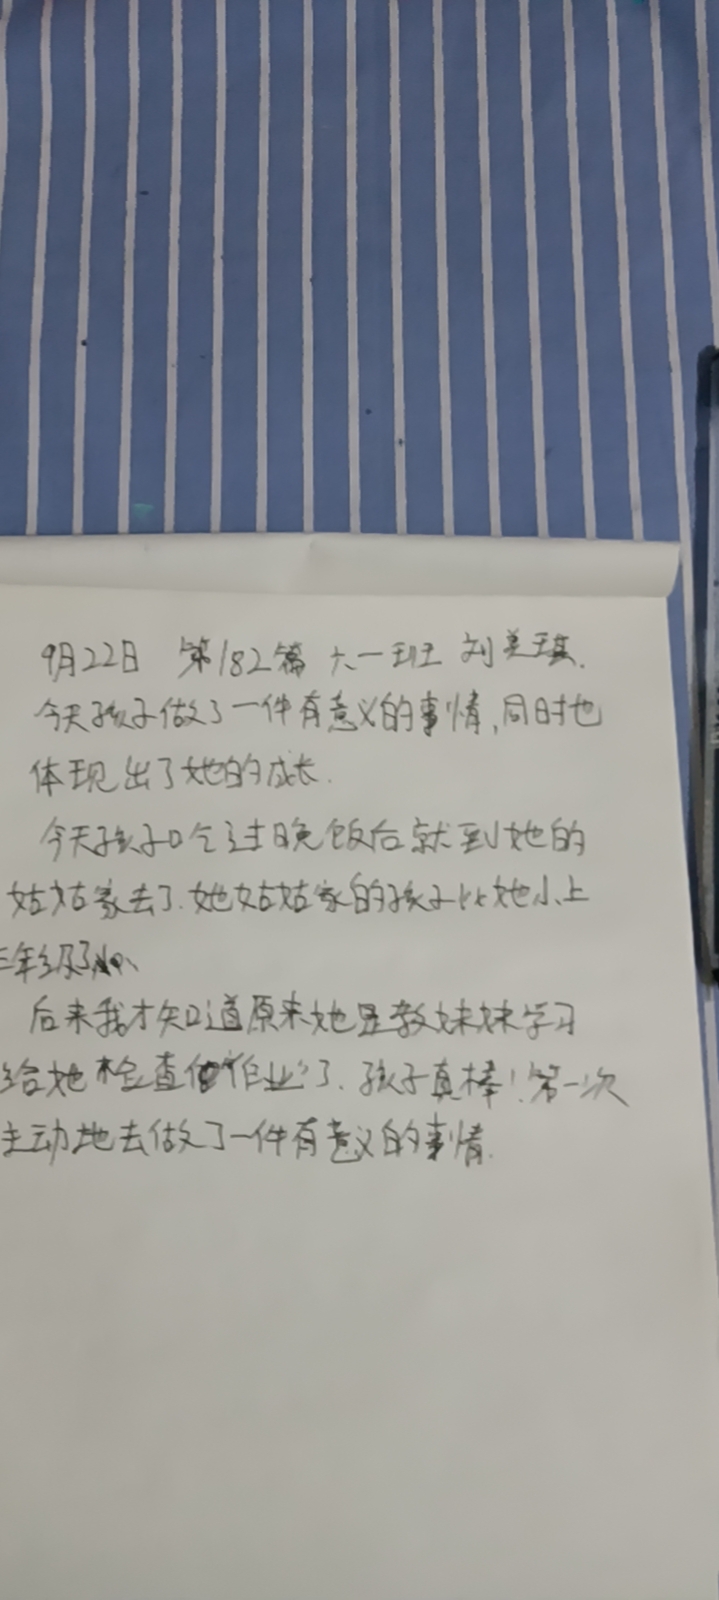 9月22日 第182篇 六一班 刘美琪.
今天孩子做了一件有意义的事情,同时也
体现出了她的成长.
今天孩子吃过晚饭后就到她的
姑姑家去了.她姑姑家的孩子比她小上
三年级了
后来我才知道原来她是教妹妹学习
给她检查作业了.孩子真棒!第一次
主动地去做了一件有意义的事情.